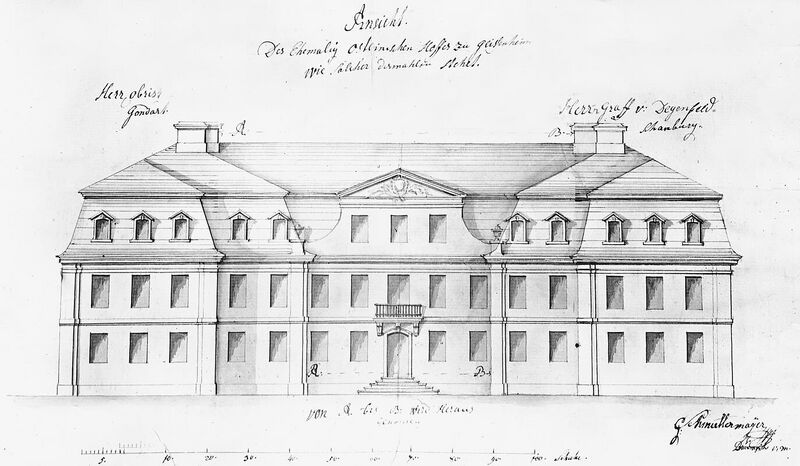 Ansicht.
Des Ehemalig Osteinischen Hoffes zu Geisenheim
Wie Solcher dermahlen Stehet.
Herr obrist
Gondart
Herr Graff v: Degenfeld
Schonburg.
A
B
A
B
von A bis B wird Heraus
G Schmuttermayer
5. 10. 20. 30. 40. 50. 60. 70. 80. 90. 100. schuhe.